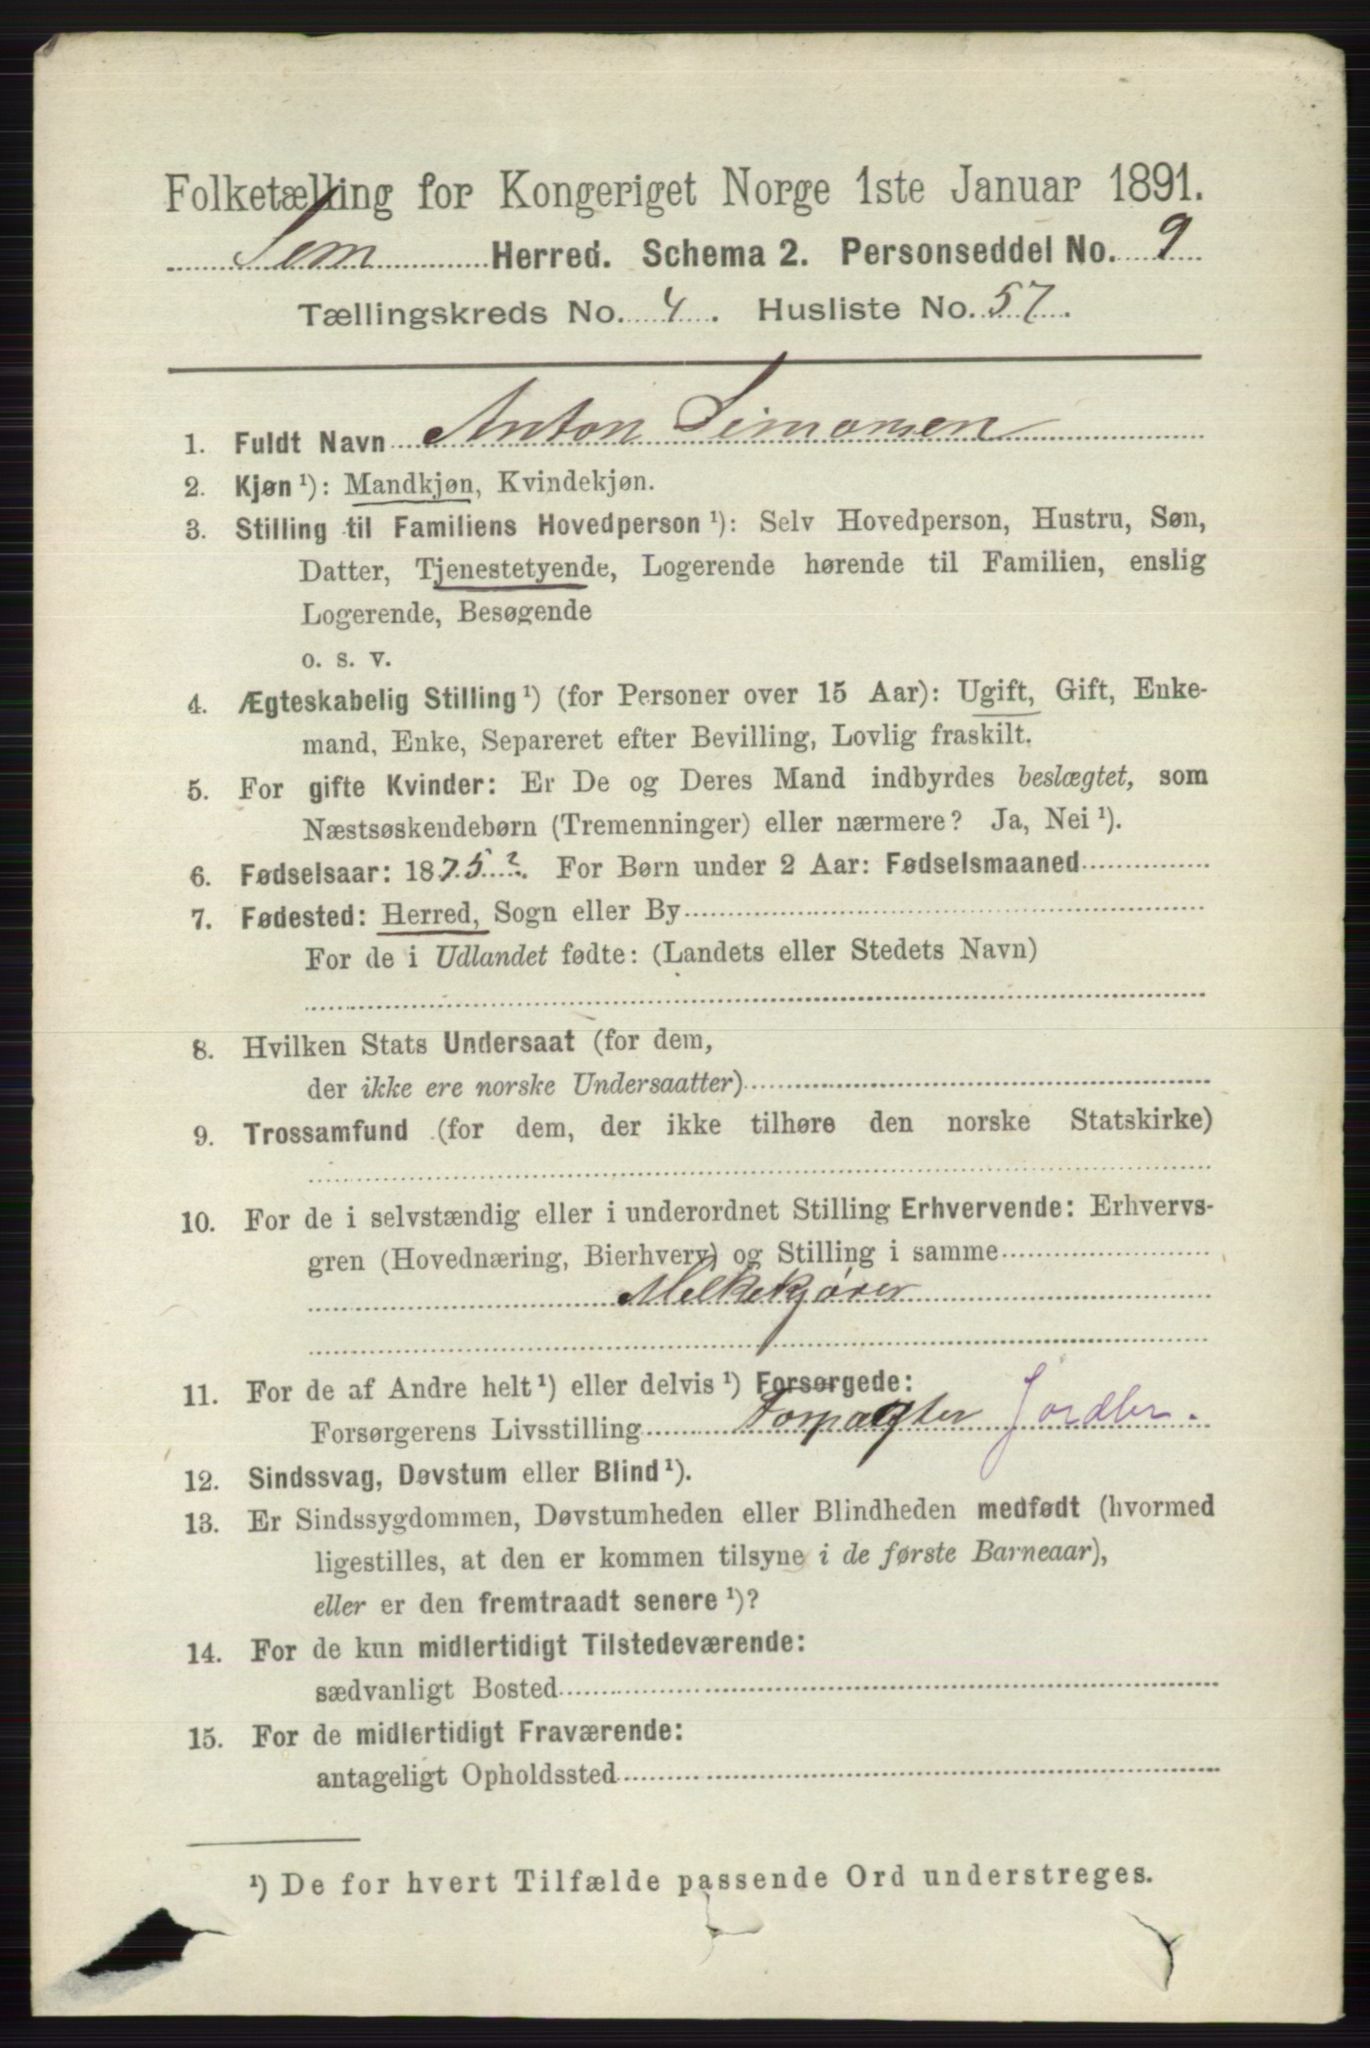 Folketælling for Kongeriget Norge 1ste Januar 1891.
Sem Herred. Schema 2. Personseddel No. 9
Tællingskreds No. 4. Husliste No. 57.
1. Fuldt Navn Anton Simonsen
2. Kjøn ¹): Mandkjøn, Kvindekjøn.
3. Stilling til Familiens Hovedperson ¹): Selv Hovedperson, Hustru, Søn,
Datter, Tjenestetyende, Logerende hørende til Familien, enslig
Logerende, Besøgende
o. s. v.
4. Ægteskabelig Stilling ¹) (for Personer over 15 Aar): Ugift, Gift, Enke-
mand, Enke, Separeret efter Bevilling, Lovlig fraskilt.
5. For gifte Kvinder: Er De og Deres Mand indbyrdes beslægtet, som
Næstsøskendebørn (Tremenninger) eller nærmere? Ja, Nei ¹).
6. Fødselsaar: 1875? For Børn under 2 Aar: Fødselsmaaned
7. Fødested: Herred, Sogn eller By
For de i Udlandet fødte: (Landets eller Stedets Navn)
8. Hvilken Stats Undersaat (for dem,
der ikke ere norske Undersaatter)
9. Trossamfund (for dem, der ikke tilhøre den norske Statskirke)
10. For de i selvstændig eller i underordnet Stilling Erhvervende: Erhvervs-
gren (Hovednæring, Bierhverv) og Stilling i samme
Melkekjører
11. For de af Andre helt ¹) eller delvis ¹) Forsørgede:
Forsørgerens Livsstilling Forpagter Jordbr.
12. Sindssvag, Døvstum eller Blind ¹).
13. Er Sindssygdommen, Døvstumheden eller Blindheden medfødt (hvormed
ligestilles, at den er kommen tilsyne i de første Barneaar),
eller er den fremtraadt senere ¹)?
14. For de kun midlertidigt Tilstedeværende:
sædvanligt Bosted
15. For de midlertidigt Fraværende:
antageligt Opholdssted
¹) De for hvert Tilfælde passende Ord understreges.